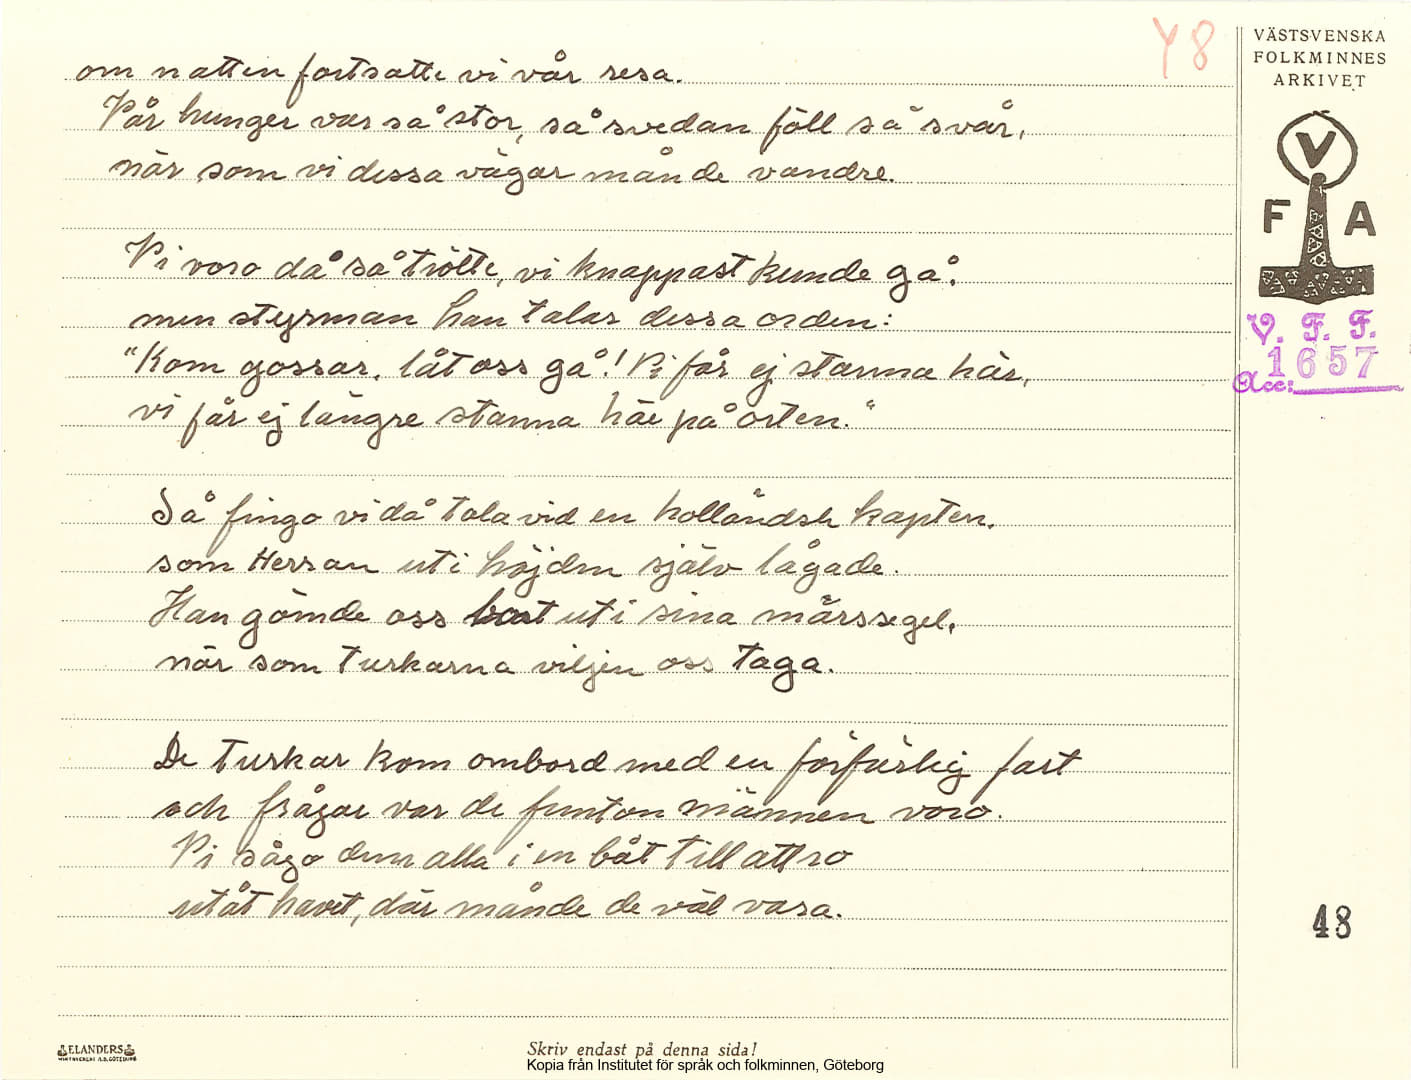 Y 8
VÄSTSVENSKA
FOLKMINNES
ARKIVET
V
F A
V. F. F.
1657
Acc:
om natten fortsatte vi vår resa.
Vår hunger var så stor, så svedan föll så svår,
när som vi dessa vägar månde vandre.
Vi voro då så trötte, vi knappast kunde gå,
men styrman han talar dessa orden:
"Kom gossar, låt oss gå! Vi får ej stanna här,
vi får ej längre stanna här på orten."
Så fingo vi då tala vid en holländsk kapten,
som Herran uti höjden själv lågade.
Han gömde oss bort uti sina märssegel,
när som turkarna viljen oss taga.
De turkar kom ombord med en förfärlig fart
och frågar var de funton männen voro.
Vi sågo dem alla i en båt till att ro
utåt havet, där månde de väl vara.
48
ELANDERS
Skriv endast på denna sida!
Kopia från Institutet för språk och folkminnen, Göteborg